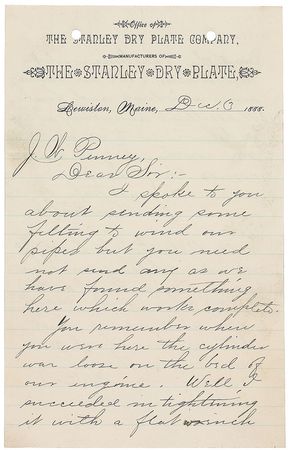 Office of
THE STANLEY DRY PLATE COMPANY,
MANUFACTURERS OF
THE STANLEY DRY PLATE,
Lewiston, Maine, Dec 6 1888.
J. W. Penney,
Dear Sir:-
I spoke to you
about sending some
filling to wind our
pipes but you need
not send any as we
have found something
here which works complete.
You remember when
you were here the cylinder
was loose on the bed of
our engine. Well I
succeeded in tightning
it with a flat wrench